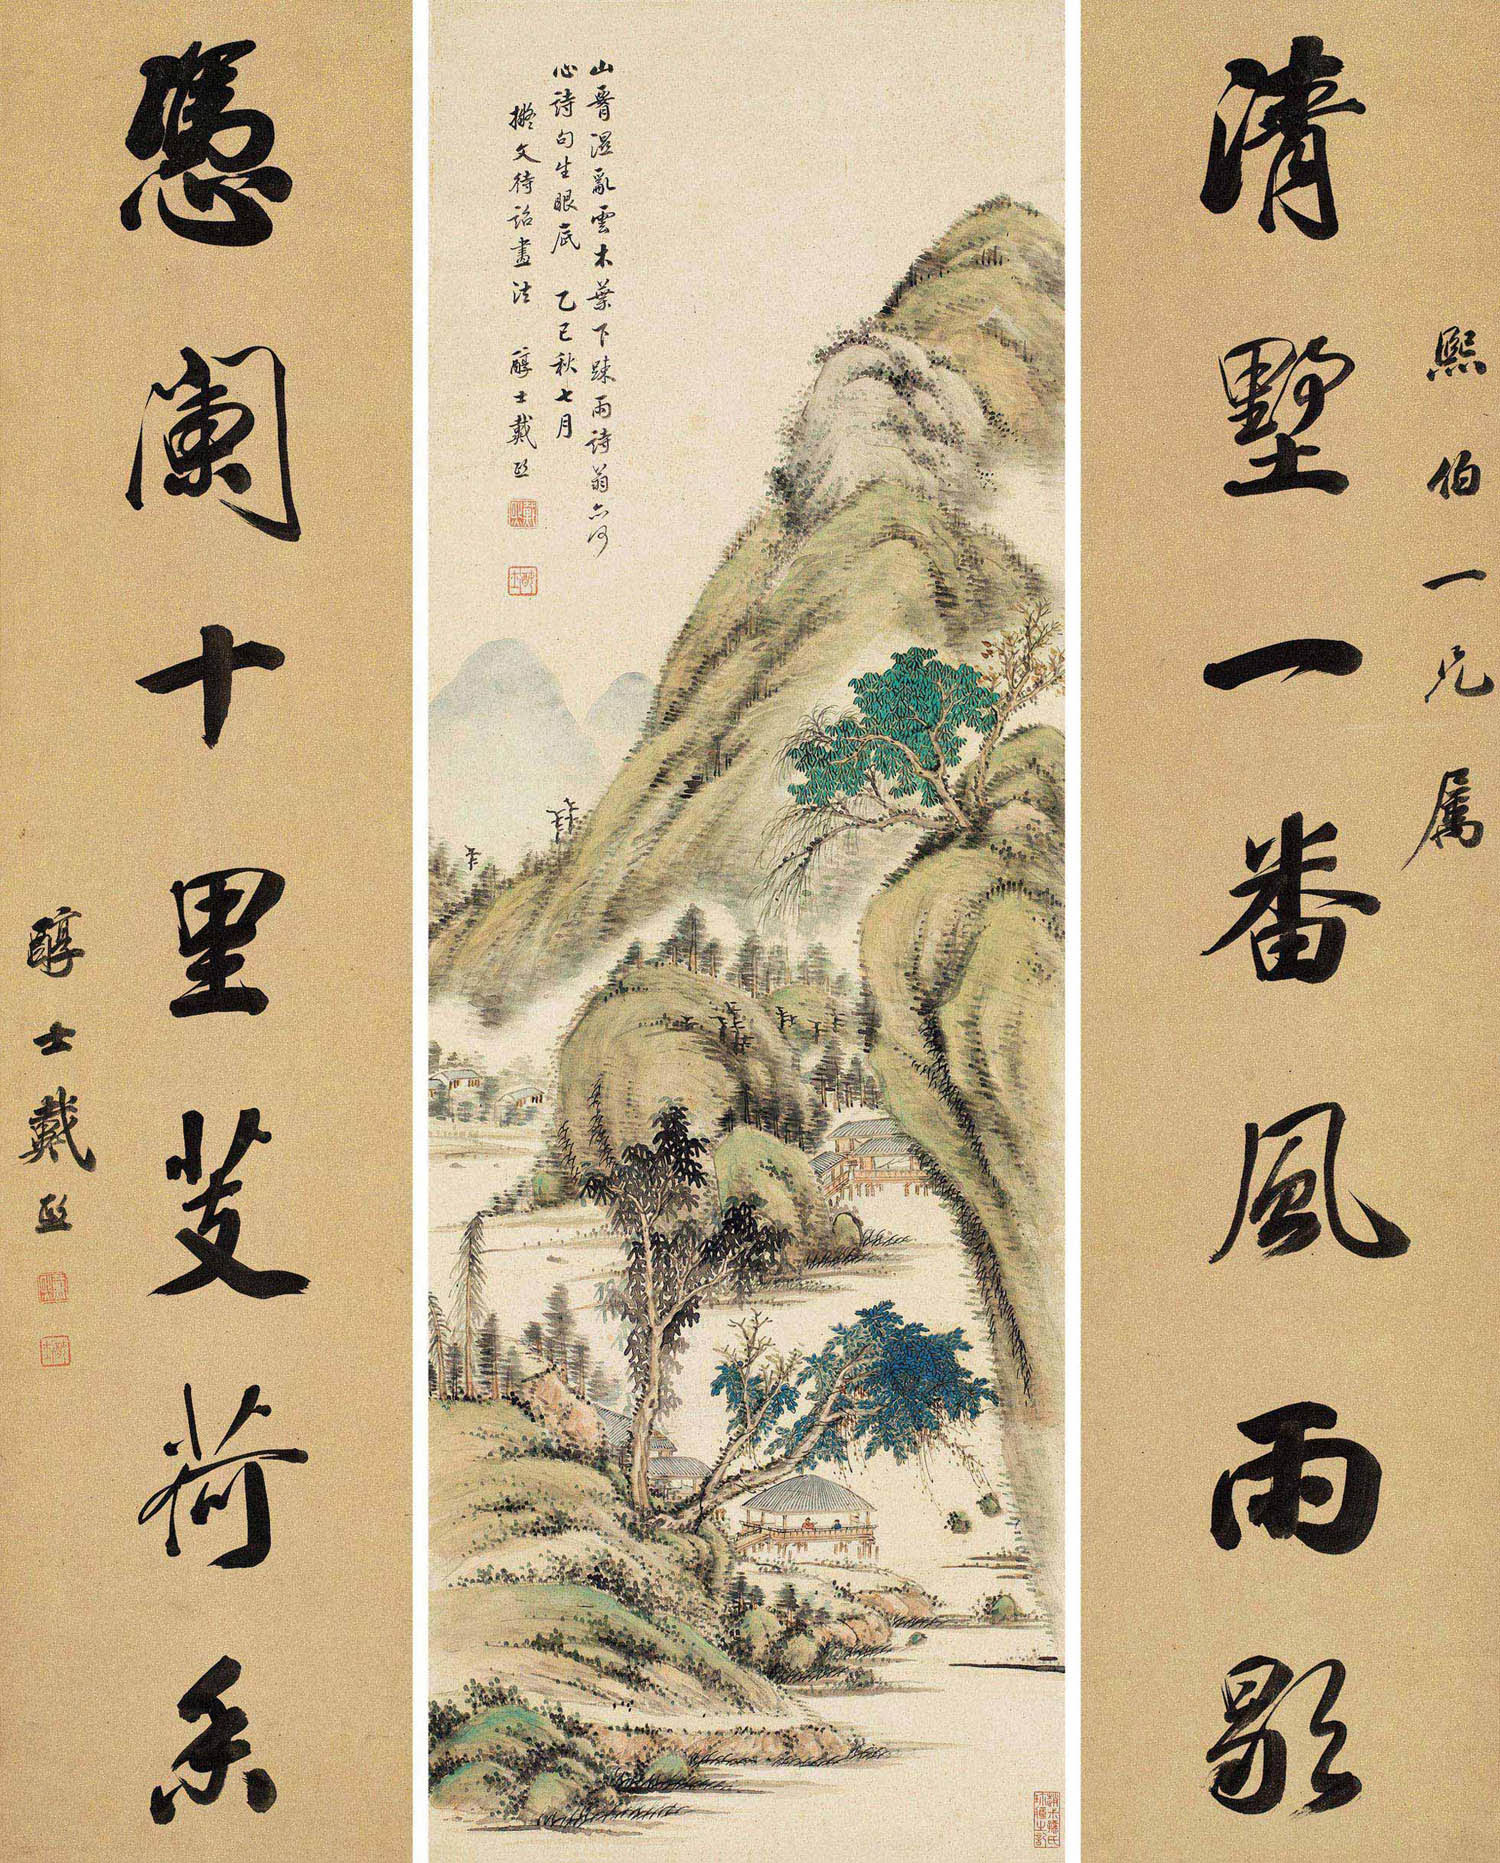 熙伯一兄属
清墅一番風雨歇
山脣濕亂雲木葉下疎雨詩翁亦何
心詩句生眼底 乙巳秋七月
擬文待詔畫法 醇士戴熙
憑闌十里芰荷香
醇士戴熙